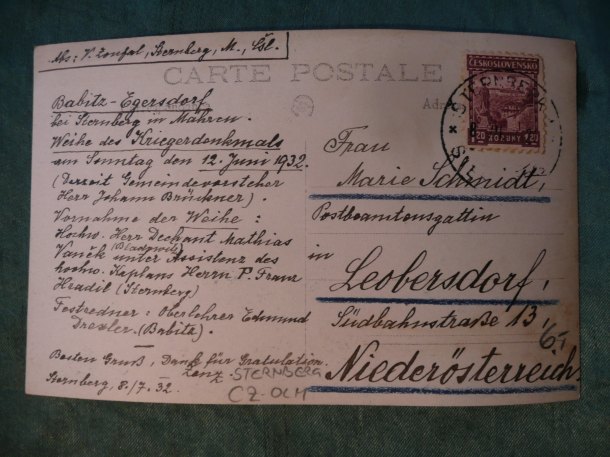 Abs: V. Zoufal, Sternberg, M., Čsl.
CARTE POSTALE
Babitz-Egersdorf
bei Sternberg in Mähren.
Weihe des Kriegerdenkmals
am Sonntag den 12. Juni 1932.
(Derzeit Gemeindevorsteher
Herr Johann Brückner).
Vornahme der Weihe:
Hochw. Herr Dechant Mathias
Vaněk unter Assistenz des
hochw. Kaplans Herrn P. Franz
Hradil (Sternberg)
Festredner: Oberlehrer Edmund
Drexler (Babitz).
Besten Gruß, Dank für Gratulation.
Sternberg, 8./7. 32.
STERNBERG
CZ-OLM
ČESKOSLOVENSKO
1.20 KORUNY 1.20
STERNBERK
Frau
Marie Schmidt,
Postbeamtensgattin
in
Leobersdorf,
Südbahnstraße 13,
6.-
Niederösterreich.